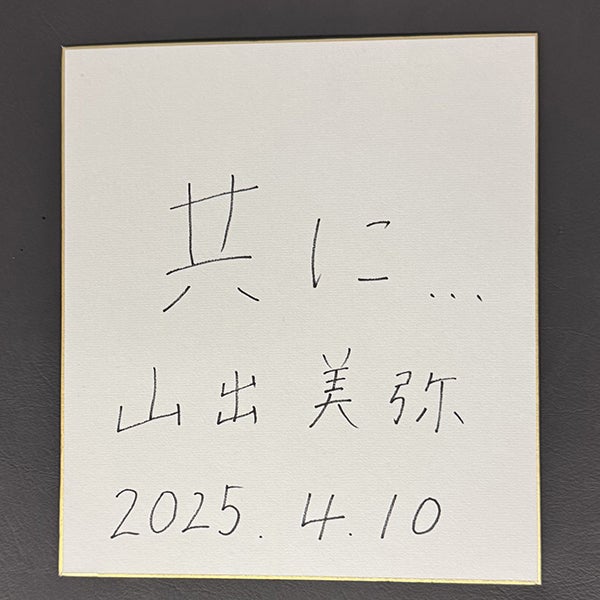 共に...
山出美弥
2025.4.10